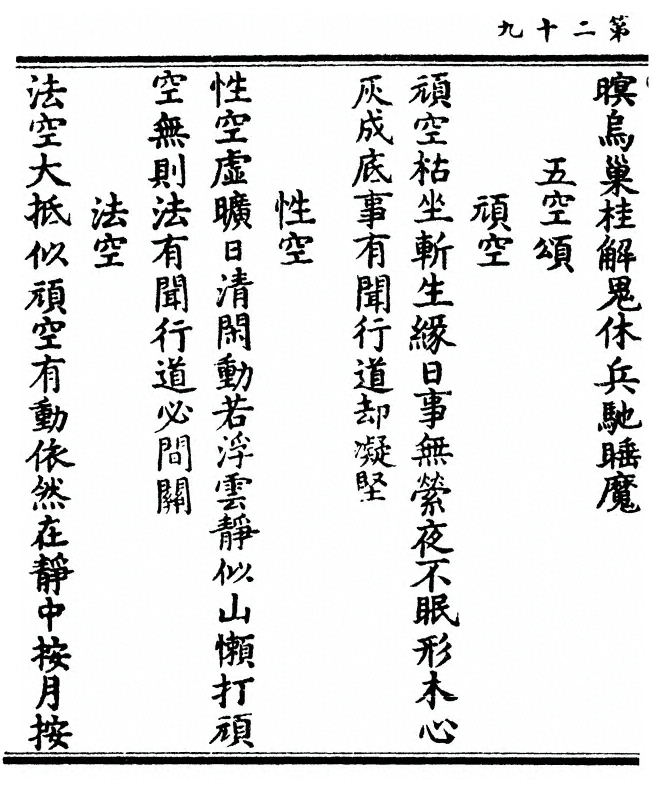 第二十九
瞑烏巢桂解鬼休兵馳睡魔
五空頌
頑空
頑空枯坐斬生緣日事無縈夜不眠形木心
灰成底事有聞行道却凝堅
性空
性空虛曠日清閑動若浮雲靜似山懶打頑
空無則法有聞行道必間關
法空
法空大抵似頑空有動依然在靜中按月按